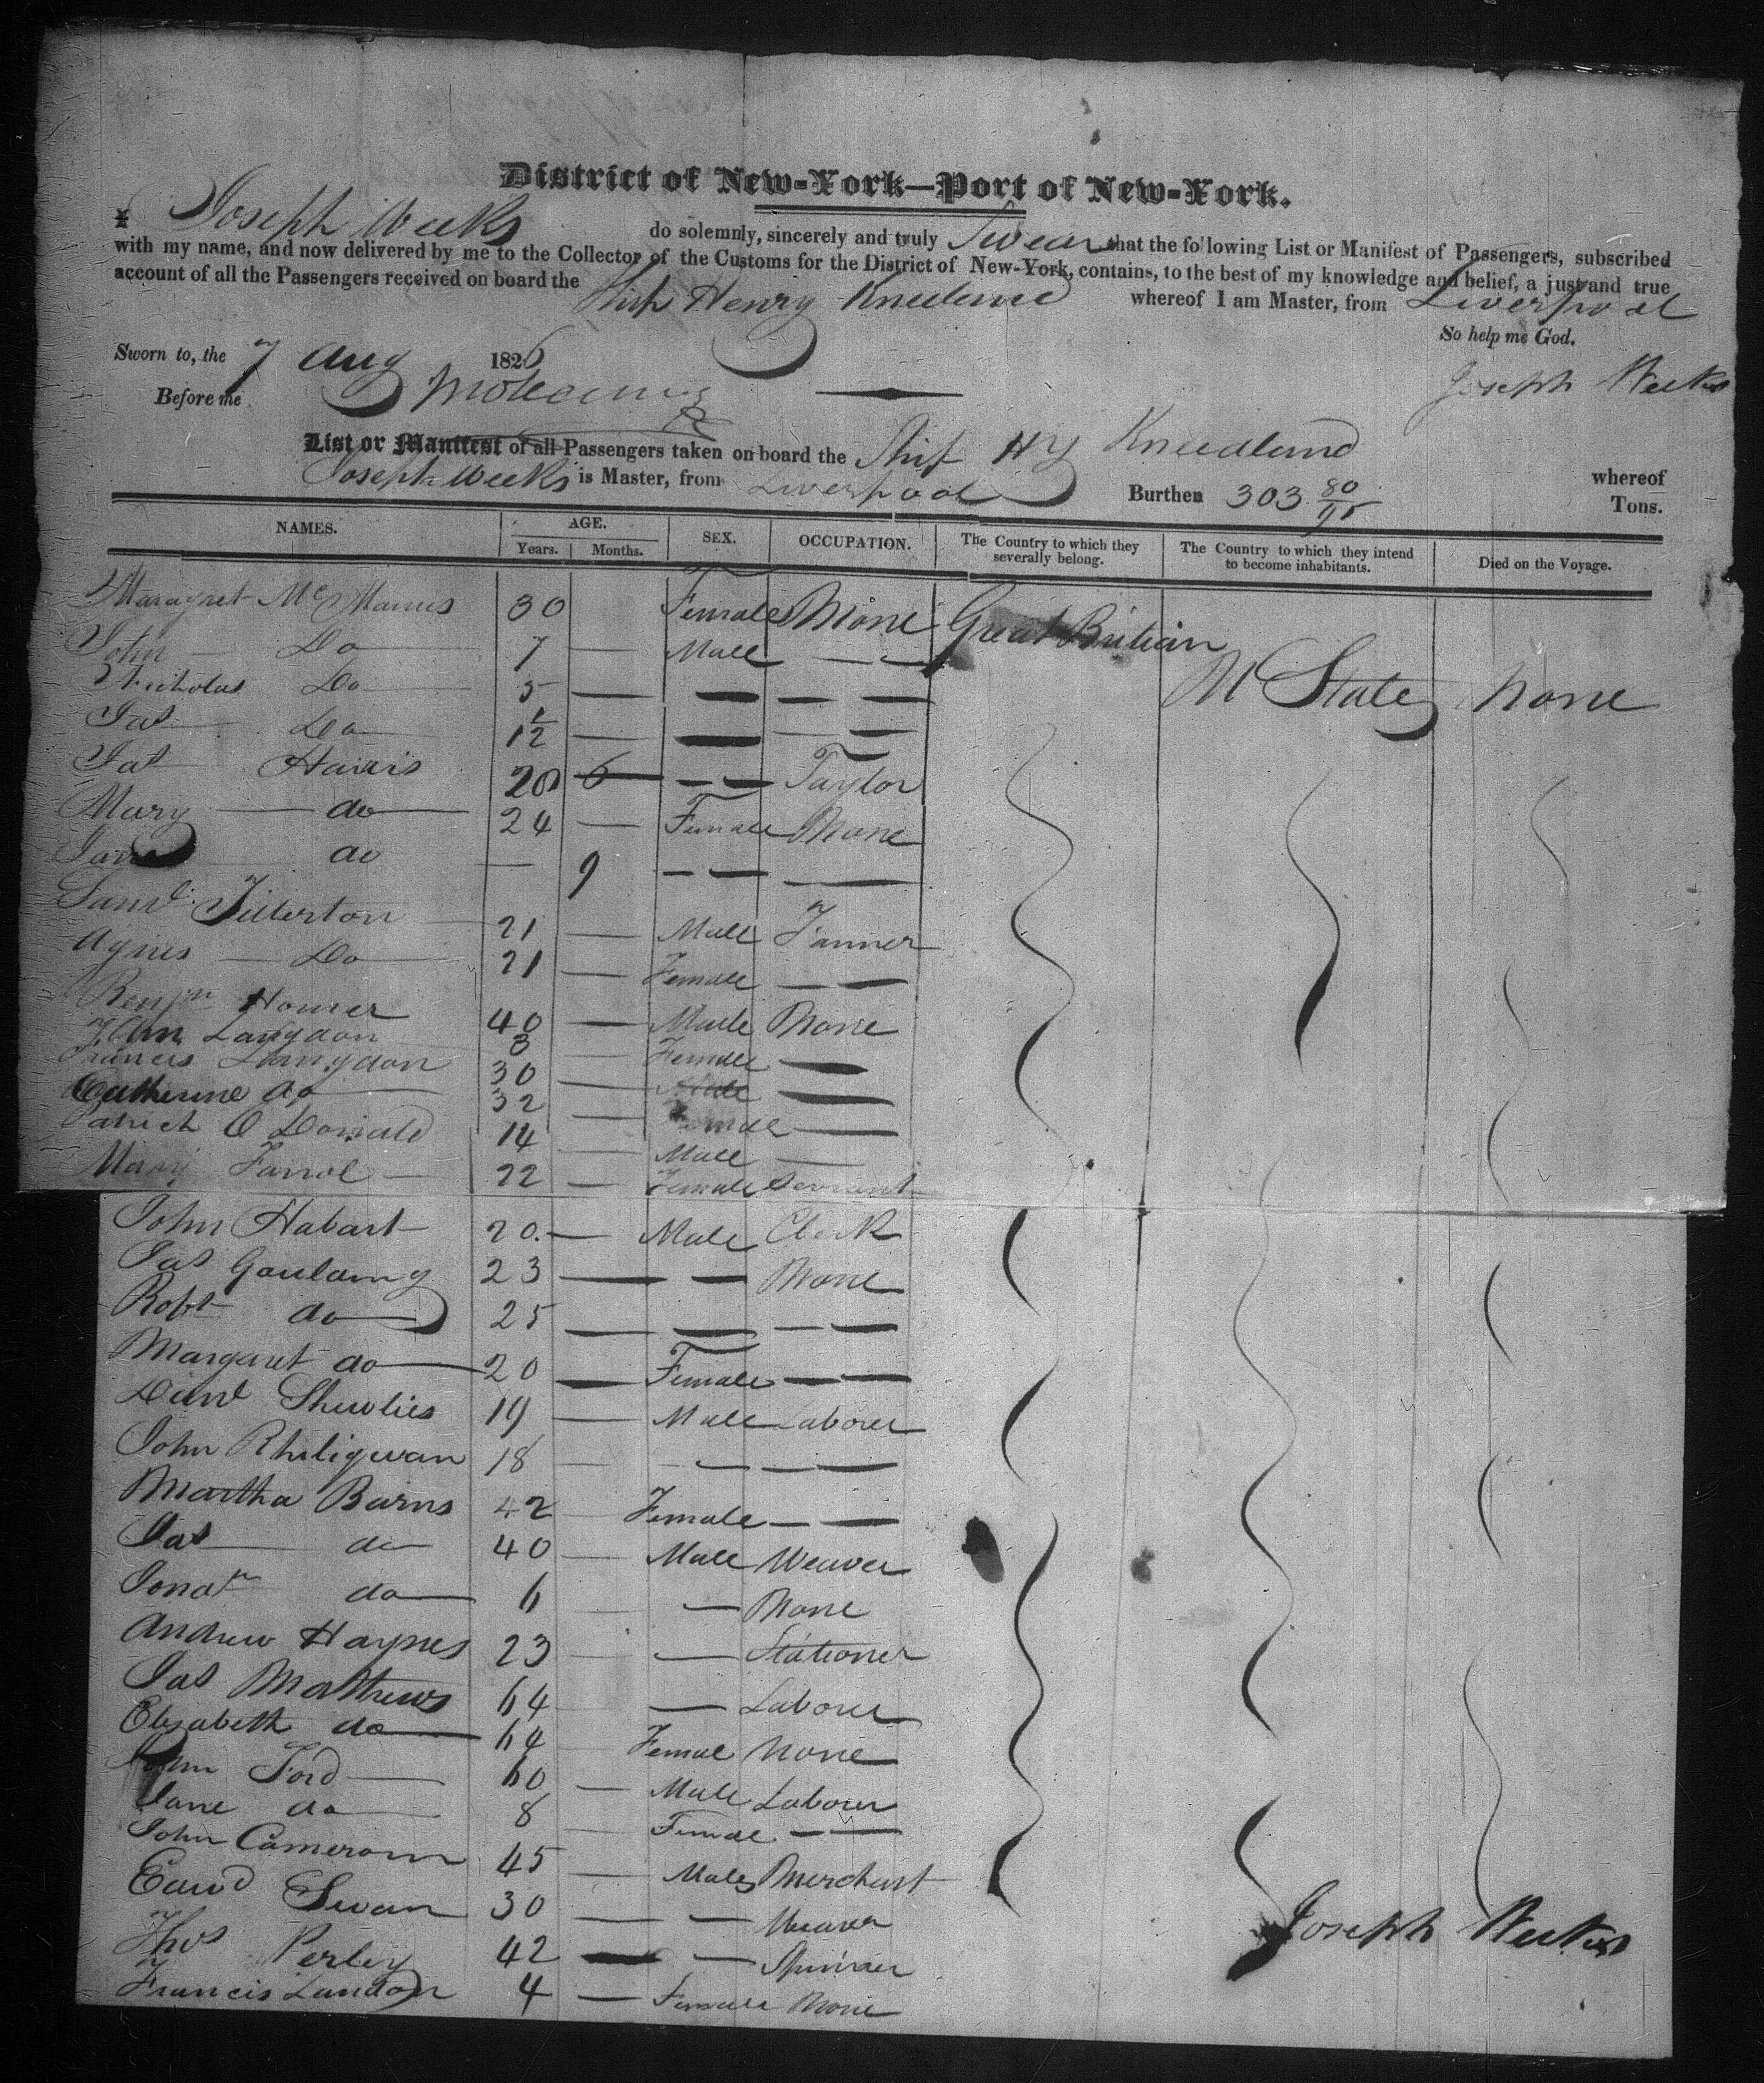 District of New-York—Port of New-York.
I Joseph Weeks do solemnly, sincerely and truly Swear that the following List or Manifest of Passengers, subscribed
with my name, and now delivered by me to the Collector of the Customs for the District of New-York, contains, to the best of my knowledge and belief, a just and true
account of all the Passengers received on board the Ship Henry Kneeland whereof I am Master, from Liverpool
So help me God.
Sworn to, the 7 Aug 1826
Joseph Weeks
Before me
List or Manifest of all Passengers taken on board the Ship Hy Kneedland whereof
Joseph Weeks is Master, from Liverpool Burthen 303 80/95 Tons.
NAMES. AGE. SEX. OCCUPATION. The Country to which they severally belong. The Country to which they intend to become inhabitants. Died on the Voyage.
Years. Months.
Margret McManus 30 Female None Great Britian
John Do 7 — Male — —
Nicholas Do 5 — — — — U States None
Jas Do 1½ — — — —
Jas Harris 20 6 — — Taylor
Mary do 24 — Female None
Jane do — 9 — — —
Saml Fillerton 21 — Male Farmer
Agnes — Do 21 — Female — —
Benjn Homer 40 — Male None
Ann Langdon 8 — Female —
Francis Langdon 30 — Male —
Catherine do 32 — Female —
Patrick O Donald 14 — Male —
Mary Farrol — 22 — Female Servant
John Habart 20 — Male Clerk
Jas 23 — — None
Robt do 25 — — — —
Margaret do 20 — Female — —
Danl 19 — Male Laborer
John 18 — — — —
Martha Barns 42 — Female — —
Jas do 40 — Male Weaver
Jonatn do 6 — — None
Andrew Haynes 23 — — Stationer
Jas Matthews 64 — — Laborer
Elisabeth do 64 — Femal None
Ford 60 — Male Laborer
Jane do 8 — Female — —
John Cameron 45 — Male Merchant
Edwd Swan 30 — — Weaver
Joseph Weeks
Thos Perley 42 — — Spinner
Francis Landon 4 — Female None